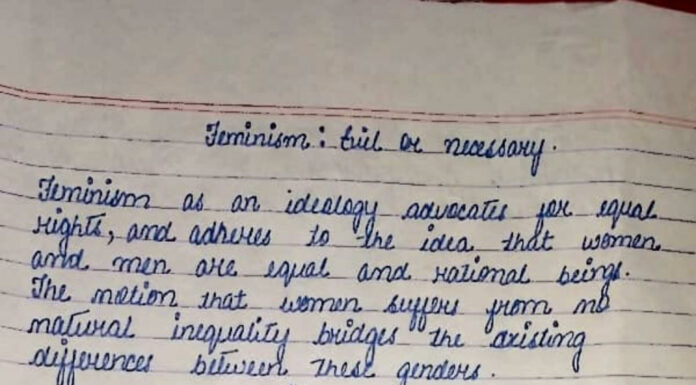 Feminism : Evil or necessary.
Feminism as an ideology advocates for equal
rights, and adheres to the idea that women
and men are equal and rational beings.
The notion that women suffers from no
natural inequality bridges the existing
differences between these genders.